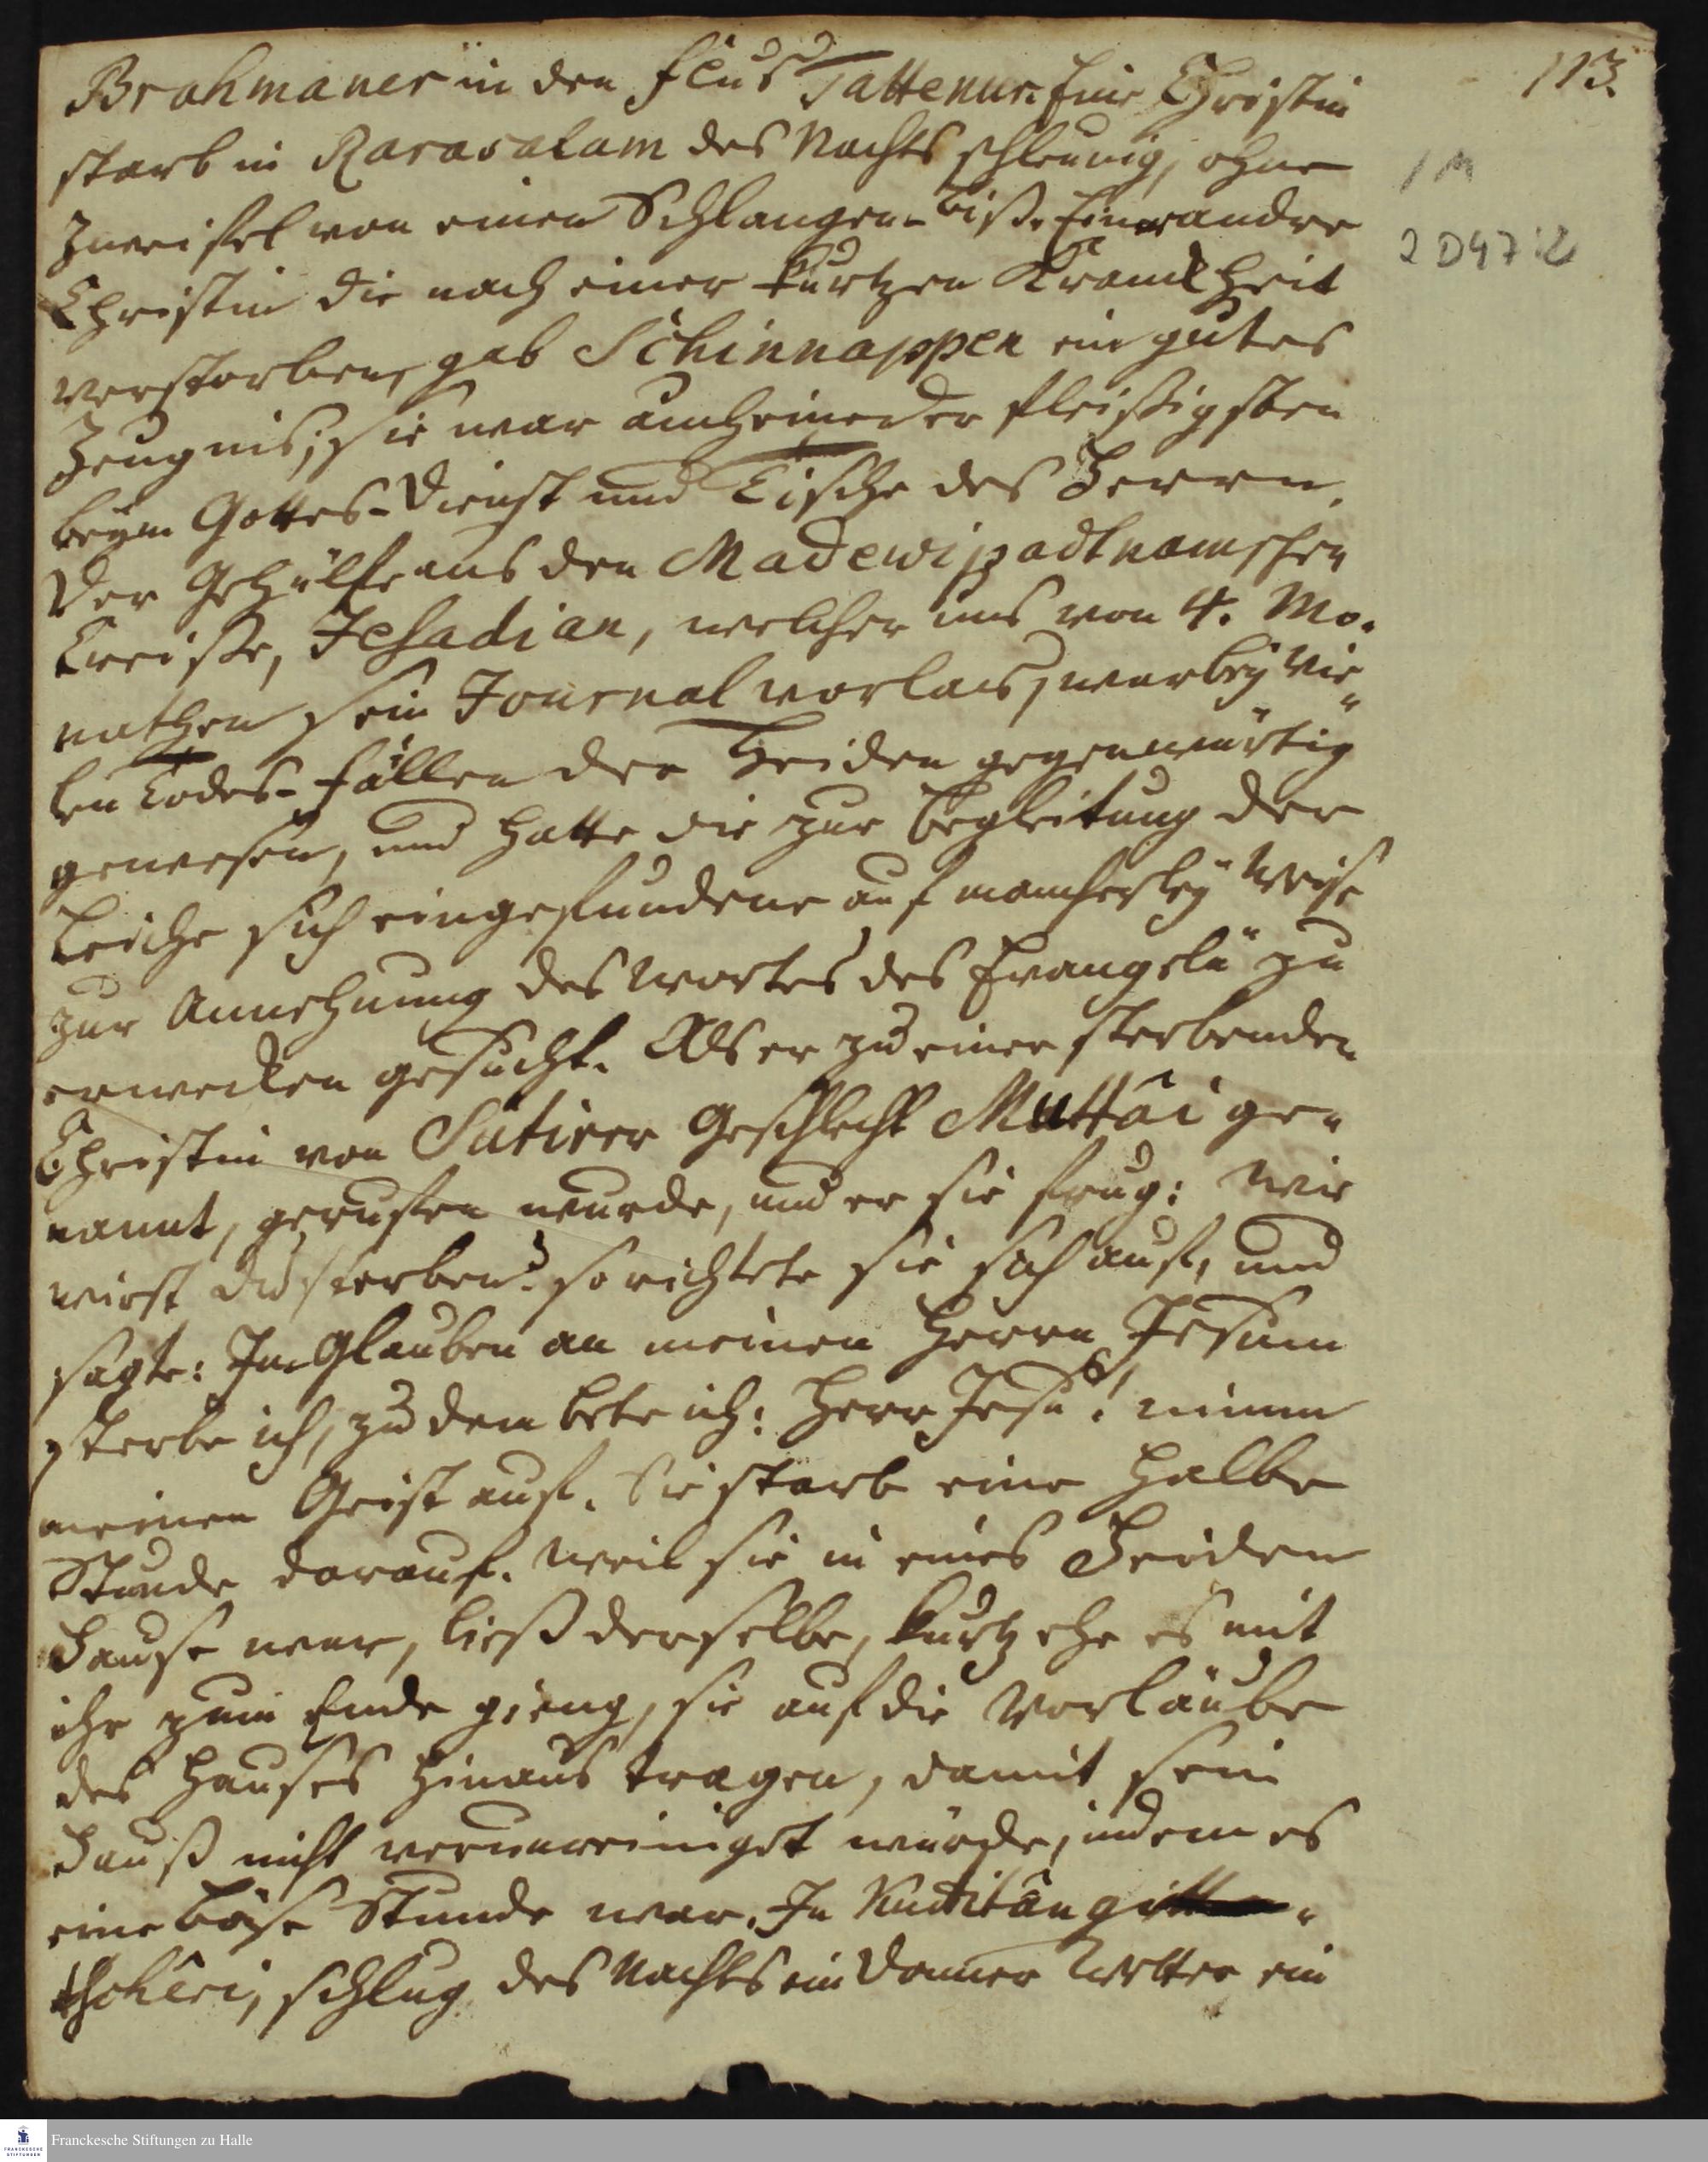 113.
Brahmaner in den Flus Tattenur. Eine Christin
starb in Rarasalam des Nachts schleunig, ohne
Zweifel von einen Schlangen-Biß. Eine andre
Christin die nach einer kurtzen Kranckheit
verstorben, gab Schinnappen ein gutes
Zeugnis; sie war auch eine der fleißigsten
beym Gottes-Dienst und Tische des Herrn.
Der Gehülfe aus den Madewipadtnamschen
Creisse, Jesadian, welcher uns von 4. Mo-
nathen sein Journal vorlas, war bey vie-
len Todes-Fällen der Heiden gegenwärtig
gewesen, und hatte die zur Begleitung der
Leiche sich eingefundene auf mancherley Weise
zur Annehmung des Wortes des Evangelii zu
erwecken gesucht. Als er zu einer sterbenden
Christin von Sutirer Geschlecht Muttai ge-
nannt, gerufen wurde, und er sie frug: Wie
wirst du sterben? so richtete sie sich auf, und
sagte: Im Glauben an meinen Herrn Jesum
sterbe ich, zu dem bete ich: Herr Jesu! nimm
meinen Geist auf. Sie starb eine halbe
Stunde darauf. Weil sie in eines Heiden
Hause war, ließ derselbe, kurtz ehe es mit
ihr zum Ende gieng, sie auf die Vorläube
des Hauses hinaus tragen, damit sein
Hauß nicht verunreiniget würde, indem es
eine böse Stunde war. In Kuditàngi-
tscheri, schlug des Nachts ein Donner Wetter ein
1 M
2 D47:2
Franckesche Stiftungen zu Halle